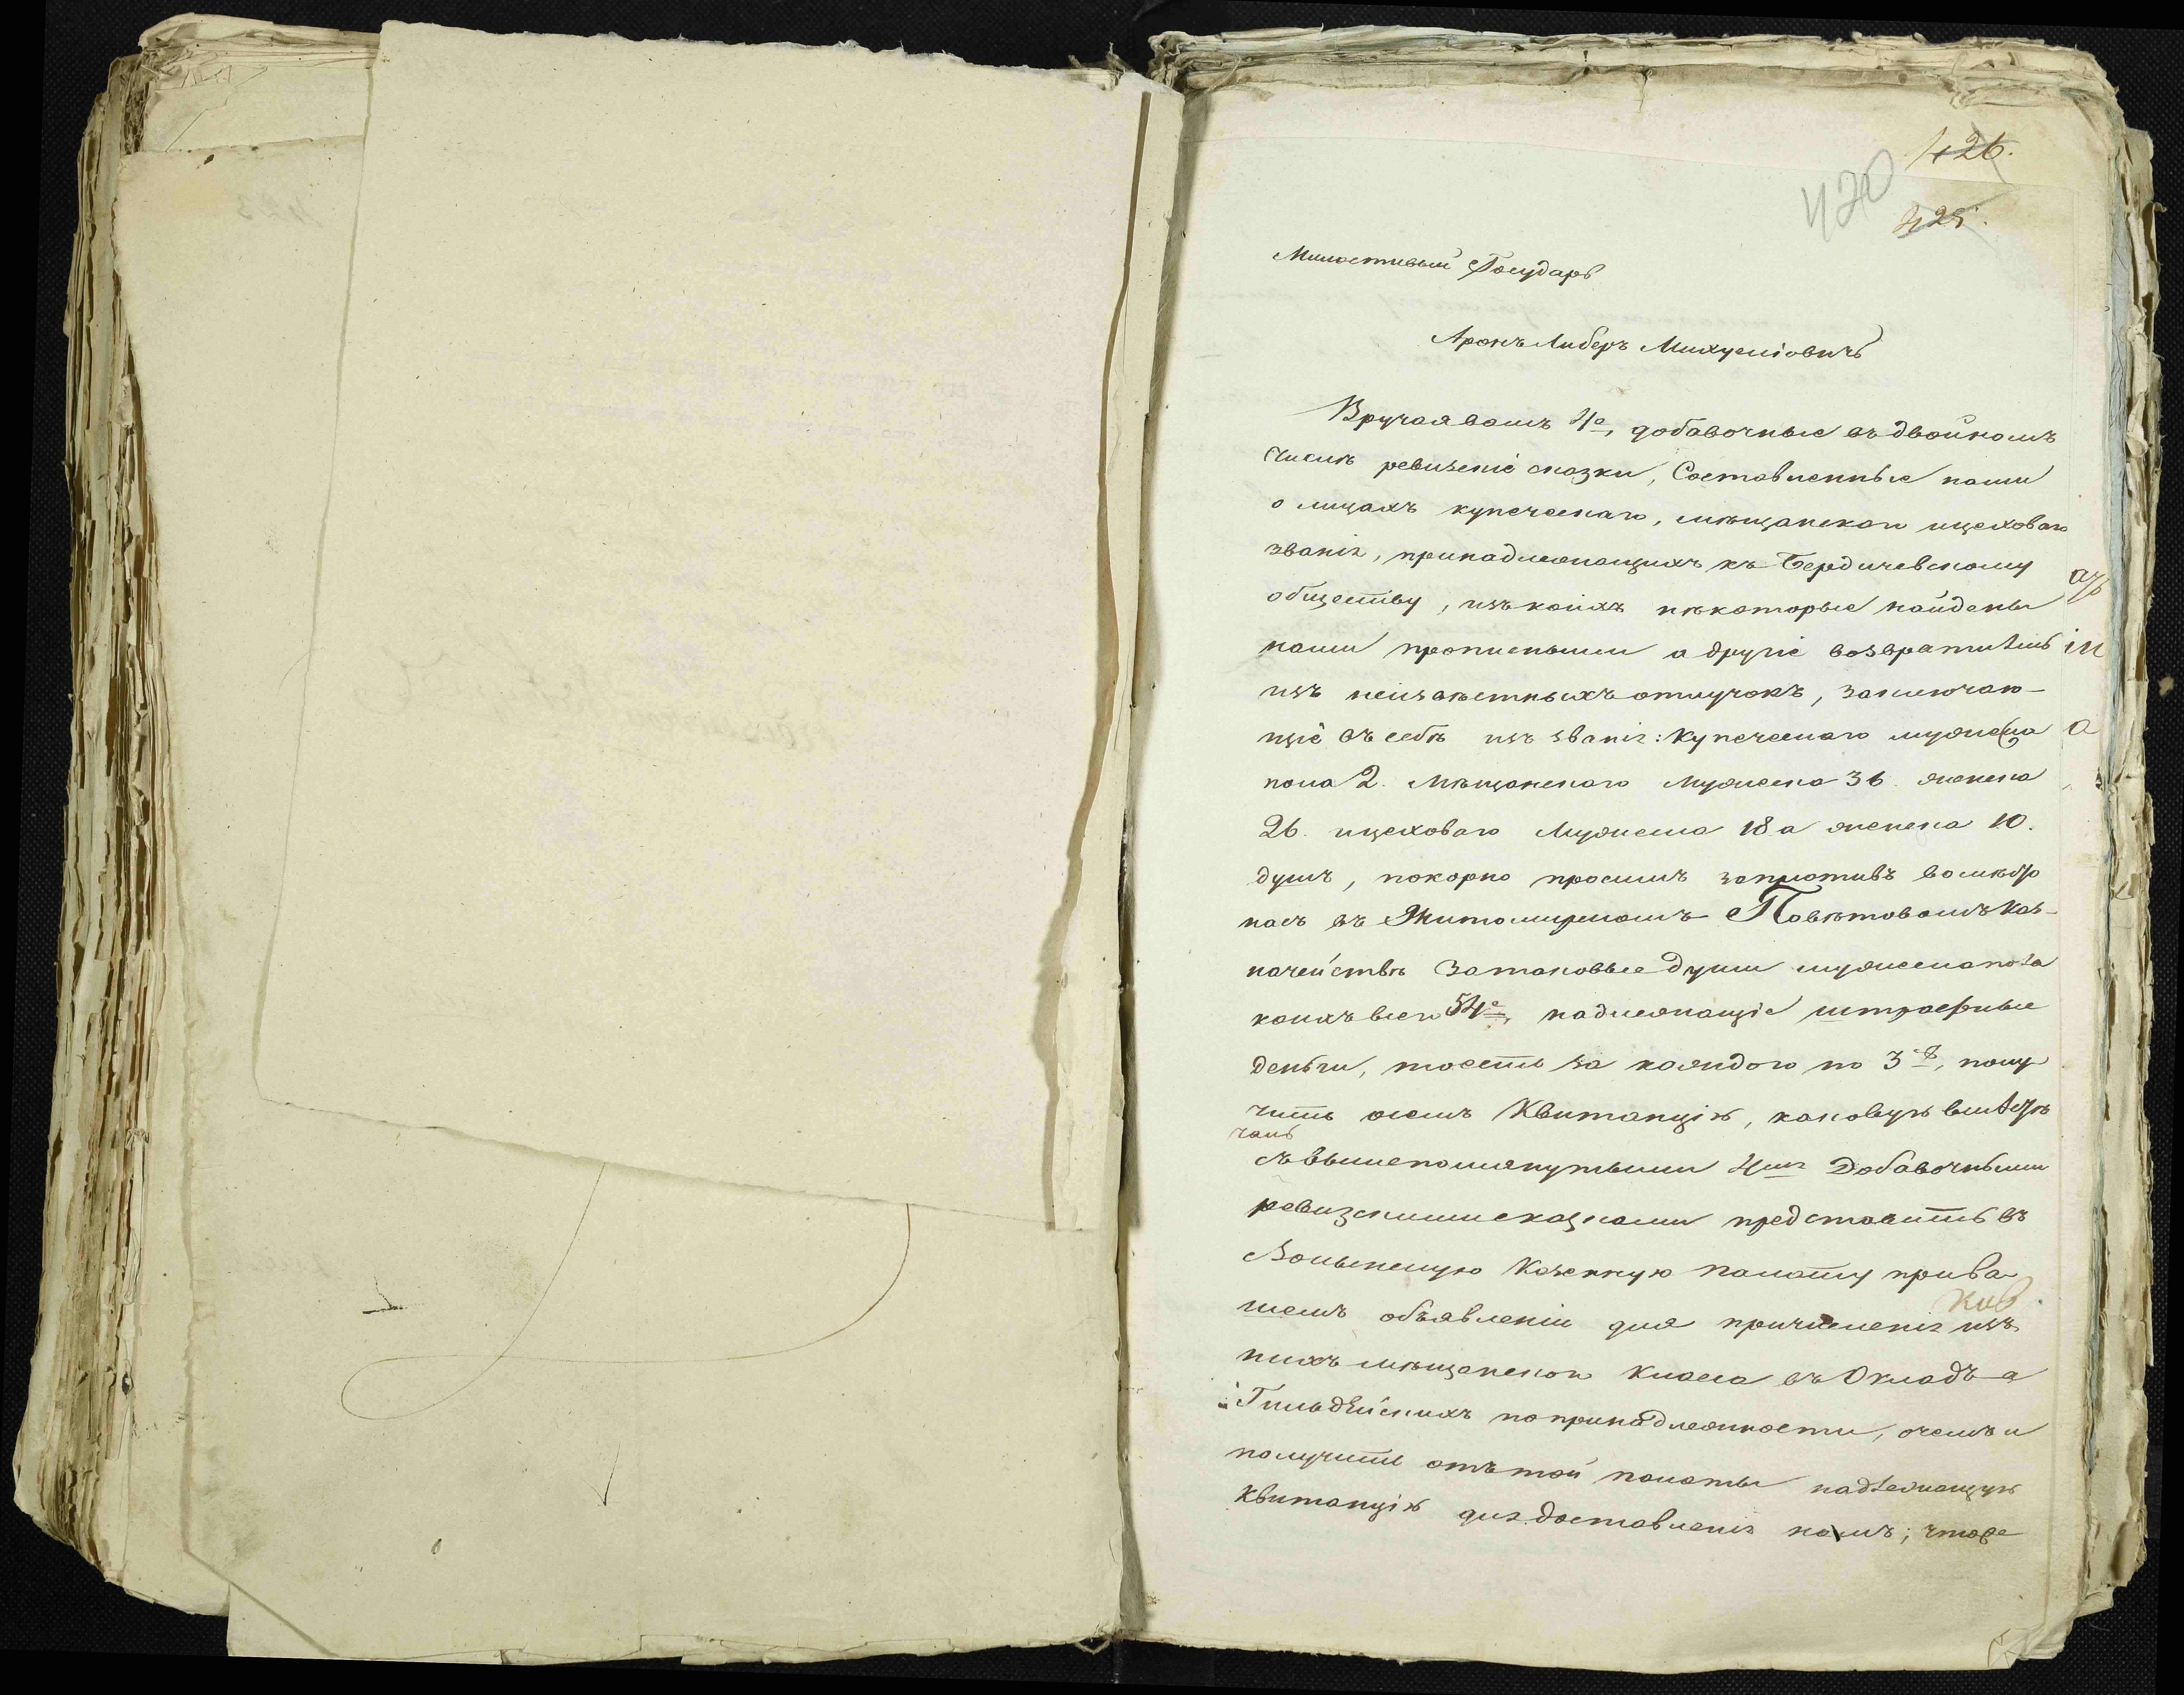 426.
420
425.
Милостивый Государь
Аронъ Либеръ Михуеліовичъ
Вручая вамъ 4е, добавочные въ двойномъ
числѣ ревизскіе сказки, Составленные нами
о лицахъ купеческаго, мѣщанскаго и цеховаго
званія, принадлежащихъ къ Бердичевскому
обществу, изъ коихъ нѣкоторые найдены
нами прописными а другіе возвратились
изъ неизвѣстныхъ отлучокъ, заключаю-
щіе въ себѣ изъ званія: Купеческаго мужеска
пола 2. Мѣщанскаго Мужеска 36. женска
26. и цеховаго Мужеска 18 а женска 10.
душъ, покорно просимъ заплативъ вмѣсто
насъ въ Житомирскомъ Повѣтовомъ Каз-
начействѣ За таковые души мужеска пола
коихъ всего 54е, надлежащіе штрафные
деньги, тоесть за каждого по 3 р, полу-
чить о семъ Квитанцію, каковую вмѣстѣ
съ вышепомянутыми 4мя Добавочными
ревизскими сказками представить въ
Волынскую Казенную Палату при ва-
шемъ объявленіи для причисленія изъ
нихъ мѣщанскаго Класса въ Окладъ а
Гильдейскихъ по принадлежности, о чемъ и
получить отъ той палаты надлежащую
Квитанцію для доставленія намъ; что же